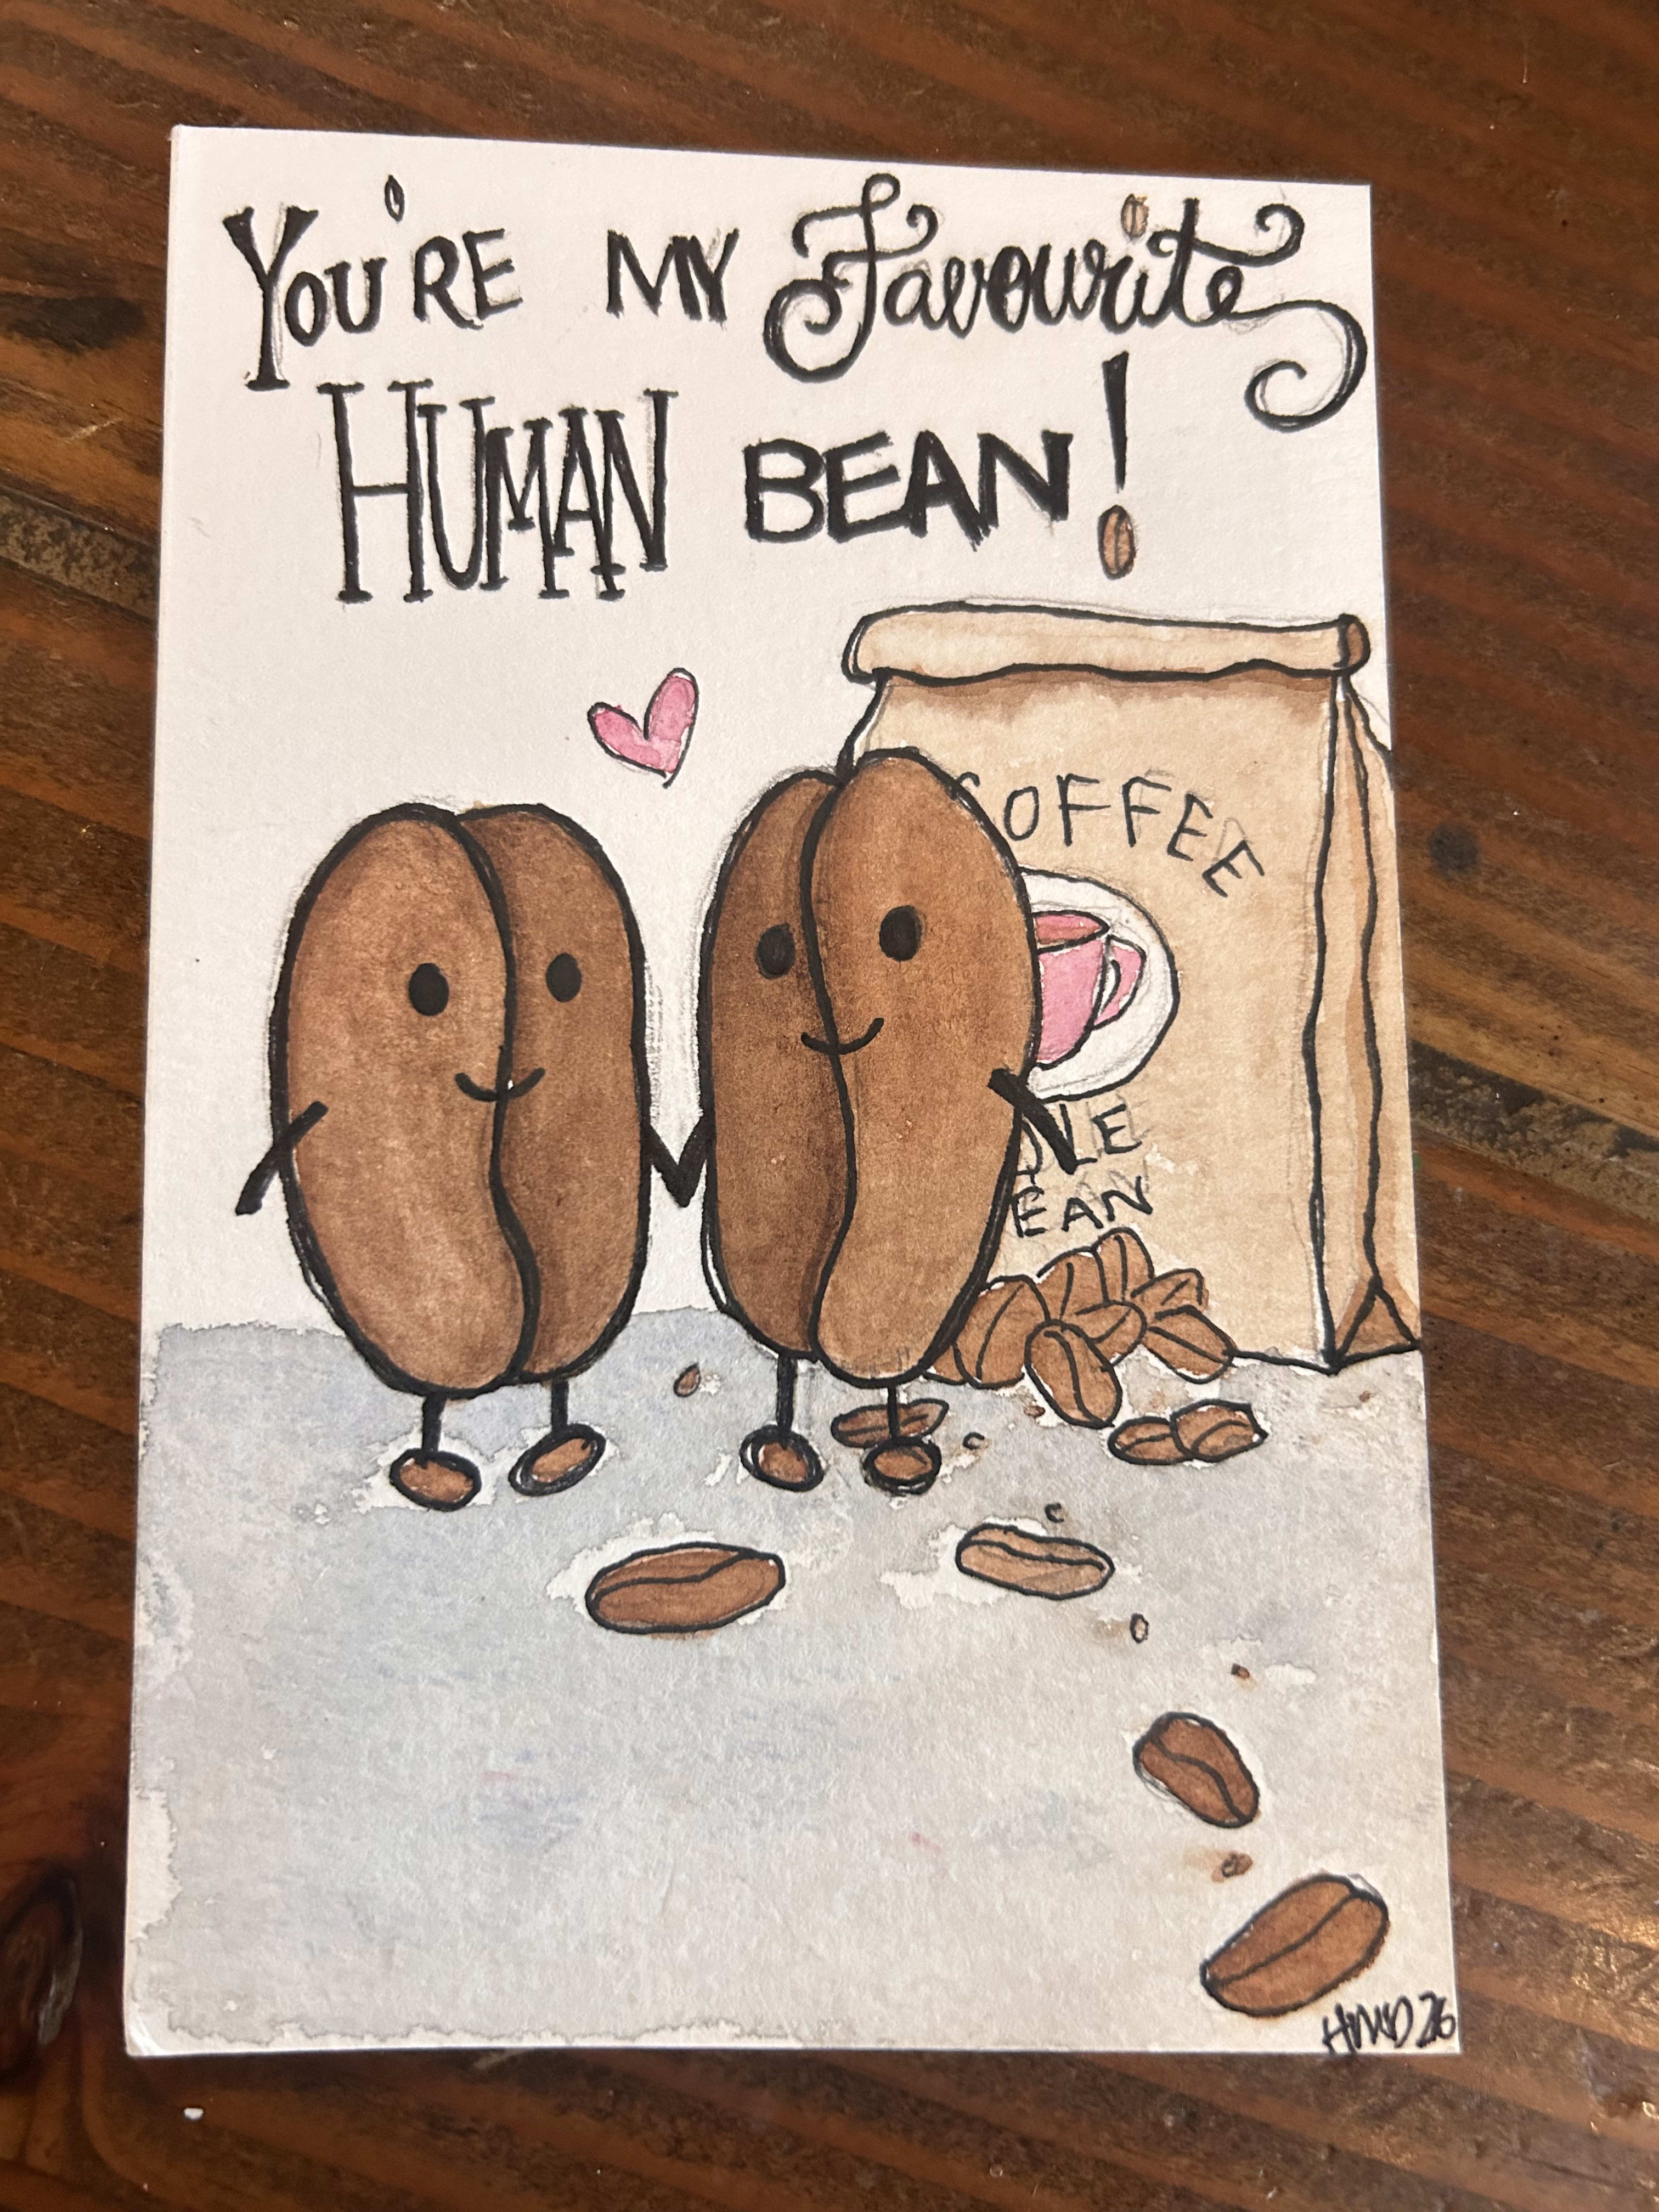 You're my Favourite
Human Bean!
COFFEE
OLE
EAN